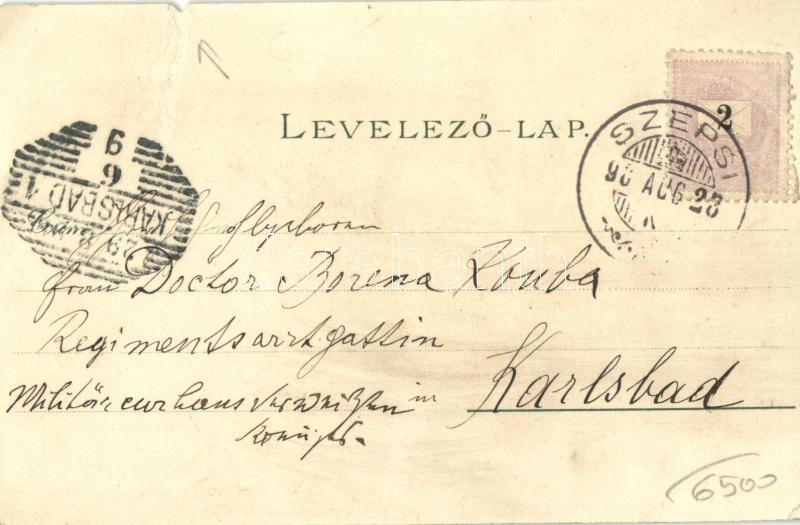 LEVELEZŐ-LAP.
2
SZEPSI
AUG 23
KARLSBAD 1
29 8
9
6
Hochgeboren
Frau Doctor Borena Kouba
Regimentsarztgattin
Militär-curhaus
in Karlsbad
6500